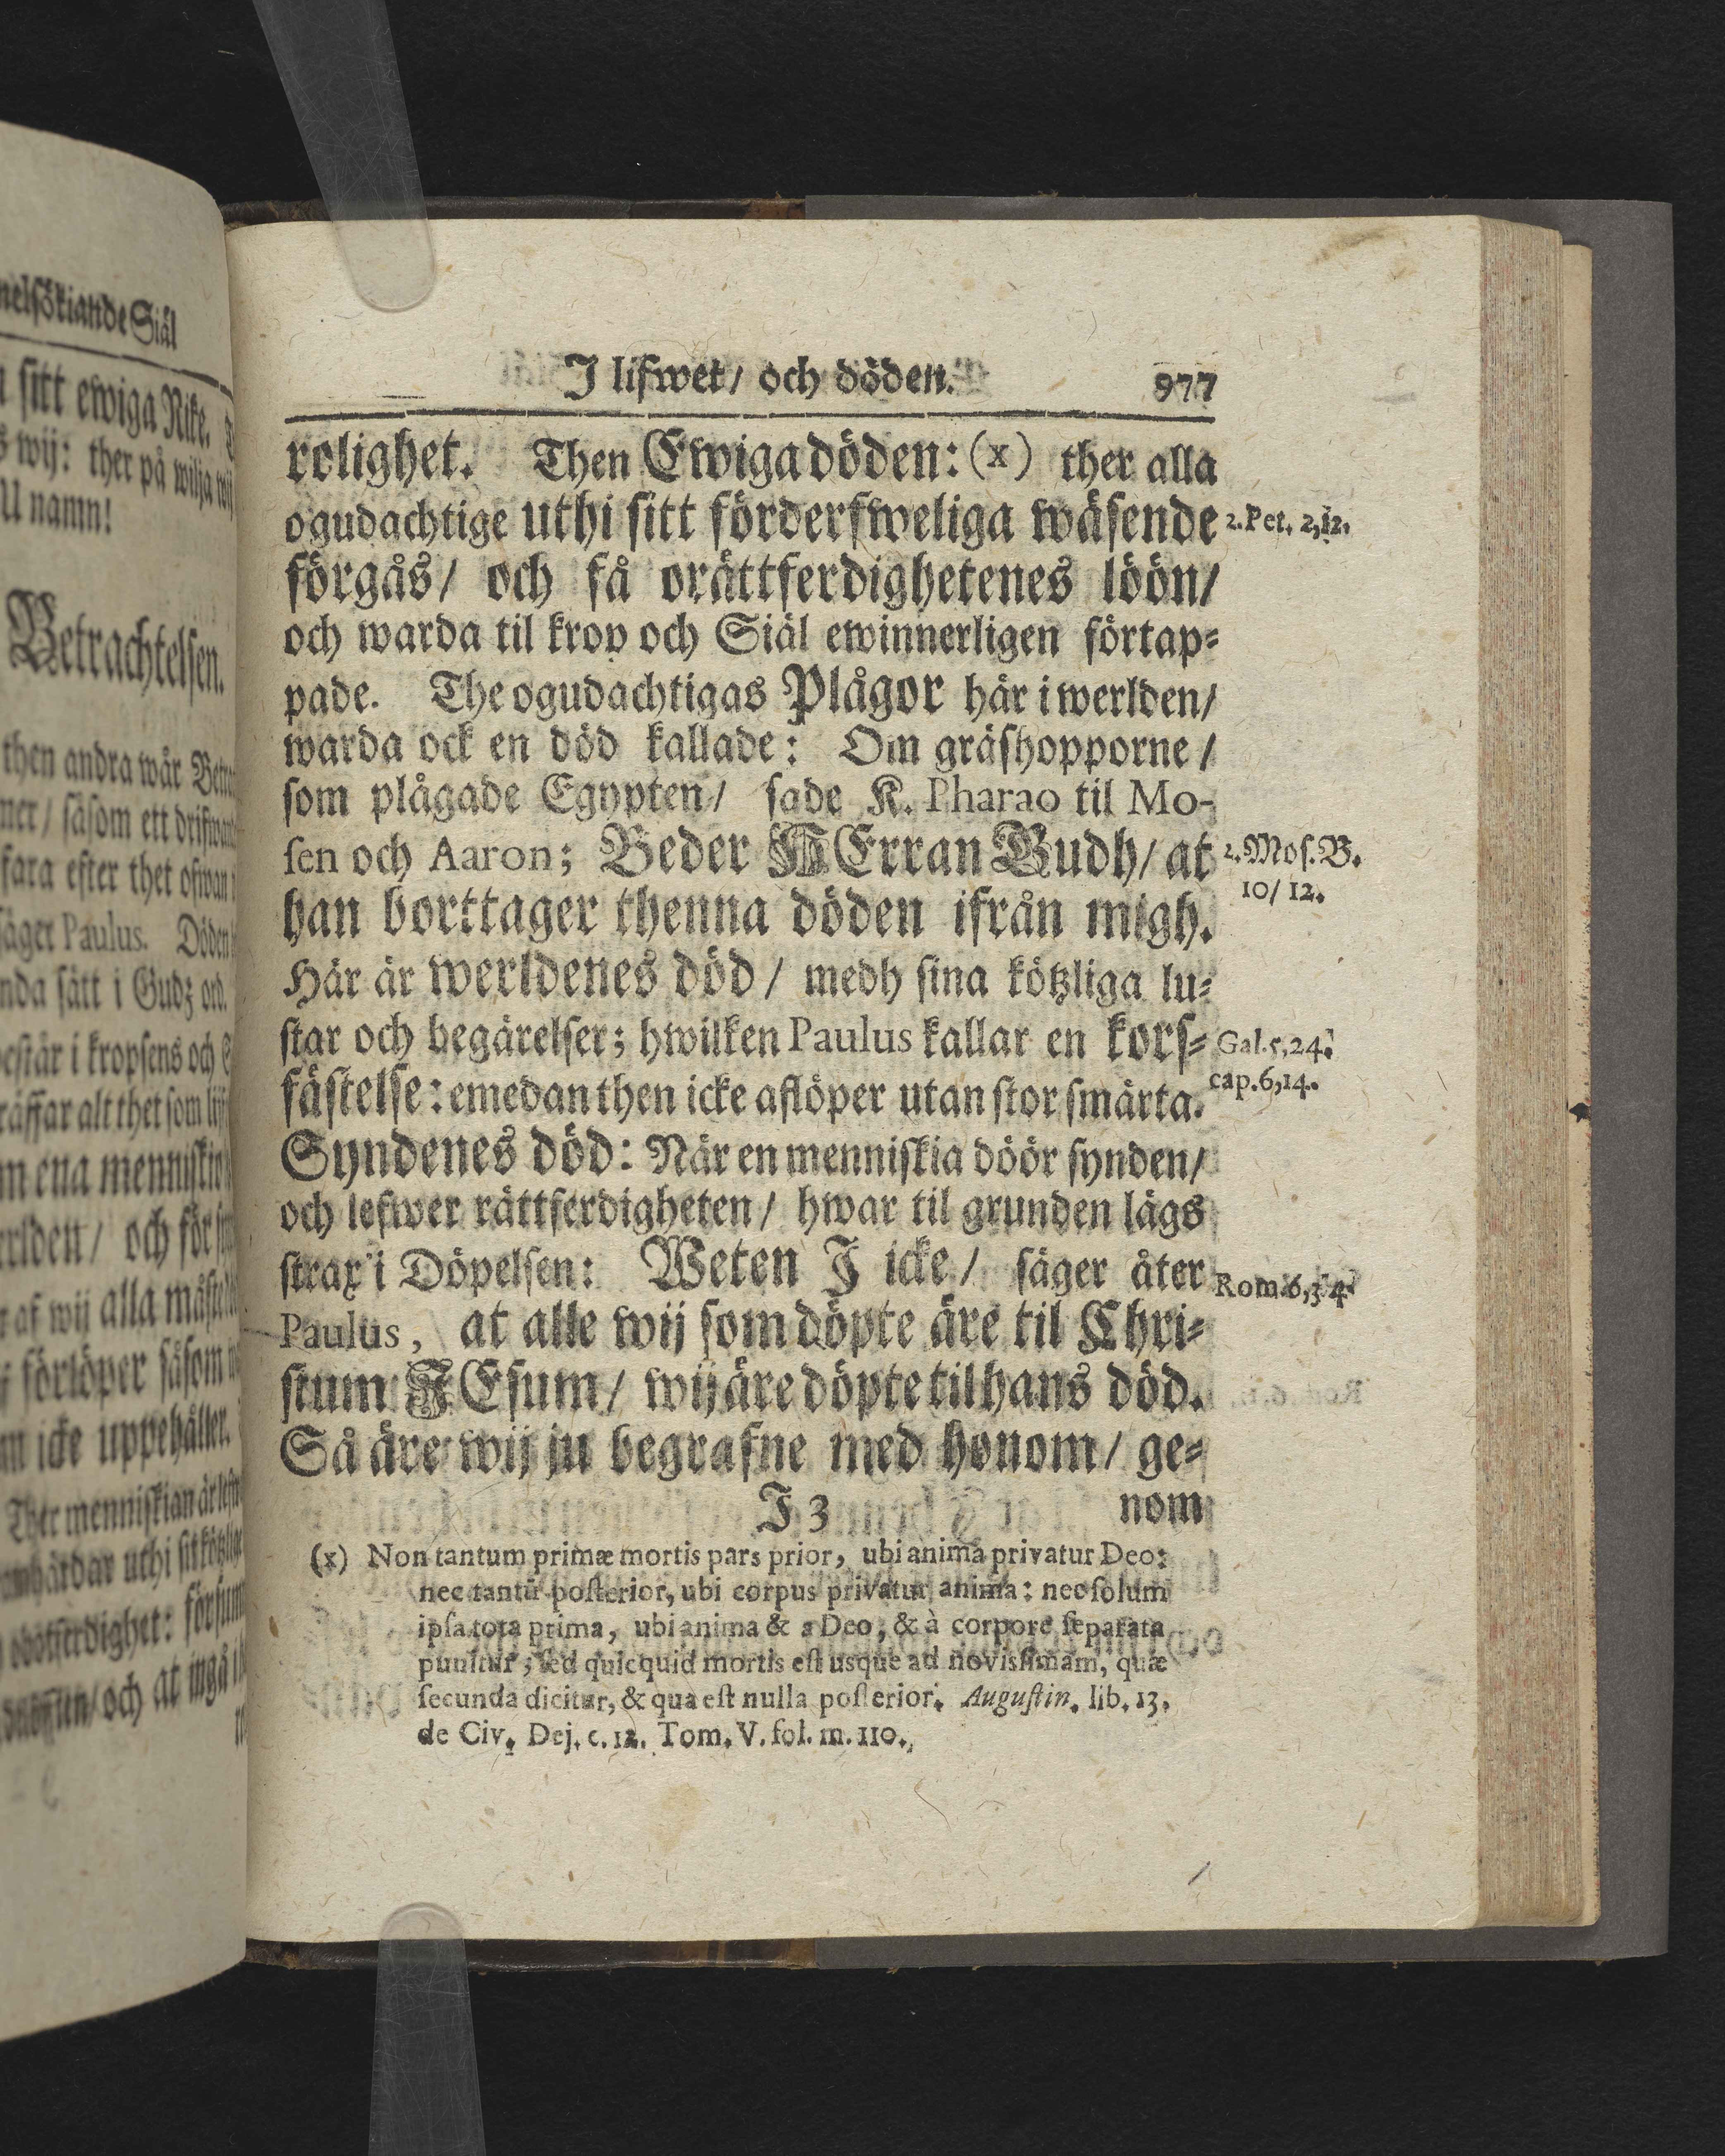 nelsökiande Siäl
sitt ewiga Rike.
wij: ther på wilja wij
U namn!
Betrachtelsen.
then andra wår
såsom ett
fara efter thet ofwan
säger Paulus. Döden
sätt i Gudz ord.
består i kropsens och
alt thet som
ena menniskio
och för
af wij alla
förlöper såsom
icke uppehåller.
Ther menniskian är
uthi sit kötzliga
och at ingå i
I lifwet/ och döden. 977
rolighet. Then Ewiga döden: (x) ther alla
ogudachtige uthi sitt förderfweliga wäsende 2. Pet. 2, 12.
förgås/ och få orättferdighetenes löön/
och warda til krop och Siäl ewinnerligen förtap-
pade. The ogudachtigas Plågor här i werlden/
warda ock en död kallade: Om gräshopporne/
som plågade Egypten/ sade K. Pharao til Mo-
sen och Aaron; Beder HErran Gudh/ at 2. Mos. B.
10/ 12.
han borttager thenna döden ifrån migh.
Här är werldenes död/ medh sina kötzliga lu-
star och begärelser; hwilken Paulus kallar en kors- Gal. 5, 24.
cap. 6, 14.
fästelse: emedan then icke aflöper utan stor smärta.
Syndenes död: När en menniskia döör synden/
och lefwer rättferdigheten/ hwar til grunden lägs
strax i Döpelsen: Weten J icke/ säger åter Rom. 6, 3. 4.
Paulus, at alle wij som döpte äre til Chri-
stum JEsum/ wij äre döpte til hans död.
Så äre wij ju begrafne med honom/ ge-
J 3 nom
(x) Non tantum primæ mortis pars prior, ubi anima privatur Deo:
nec tantū posterior, ubi corpus privatur anima: nec solum
ipsa tota prima, ubi anima & a Deo, & à corpore separata
punitur; sed quicquid mortis est usque ad novissimam, quæ
secunda dicitur, & qua est nulla posterior. Augustin. lib. 13.
de Civ. Dej. c. 12. Tom. V. fol. m. 110.